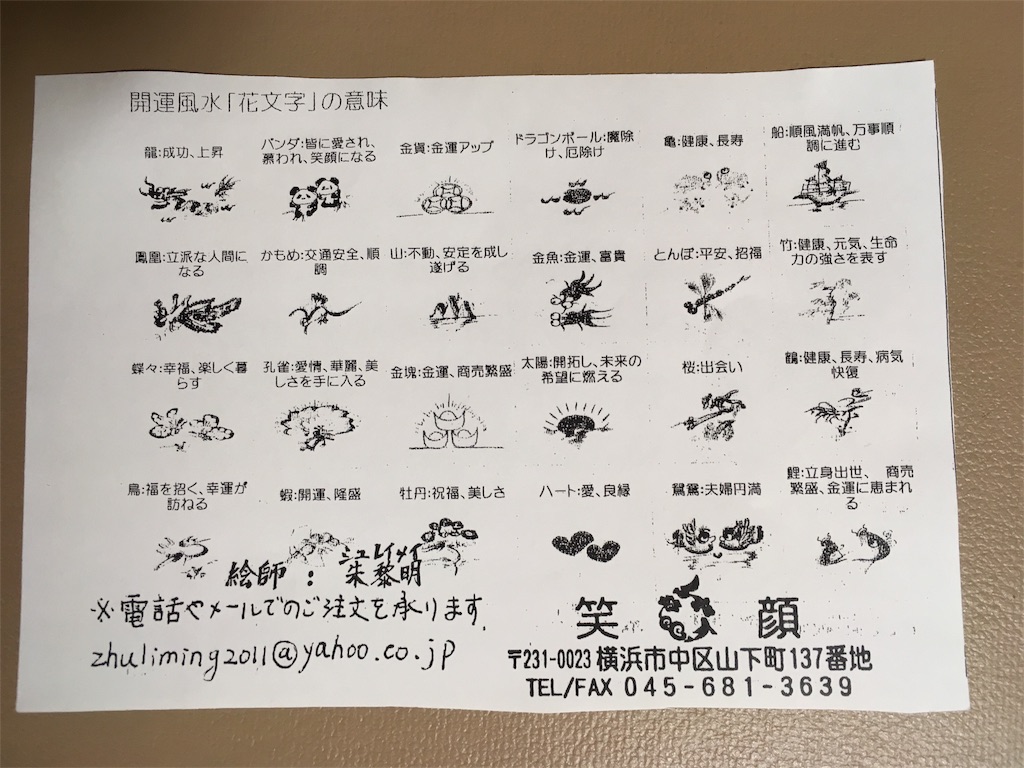 開運風水「花文字」の意味
龍:成功、上昇
パンダ:皆に愛され、
慕われ、笑顔になる
金貨:金運アップ
ドラゴンボール:魔除
け、厄除け
亀:健康、長寿
船:順風満帆、万事順
調に進む
鳳凰:立派な人間に
なる
かもめ:交通安全、順
調
山:不動、安定を成し
遂げる
金魚:金運、富貴
とんぼ:平安、招福
竹:健康、元気、生命
力の強さを表す
蝶々:幸福、楽しく暮
らす
孔雀:愛情、華麗、美
しさを手に入る
金塊:金運、商売繁盛
太陽:開拓し、未来の
希望に燃える
桜:出会い
鶴:健康、長寿、病気
快復
鳥:福を招く、幸運が
訪ねる
蝦:開運、隆盛
牡丹:祝福、美しさ
ハート:愛、良縁
鴛鴦:夫婦円満
鯉:立身出世、 商売
繁盛、金運に恵まれ
る
シュレイメイ
絵師:朱黎明
※電話やメールでのご注文を承ります.
zhuliming2011@yahoo.co.jp
笑顔
〒231-0023 横浜市中区山下町137番地
TEL/FAX 045-681-3639